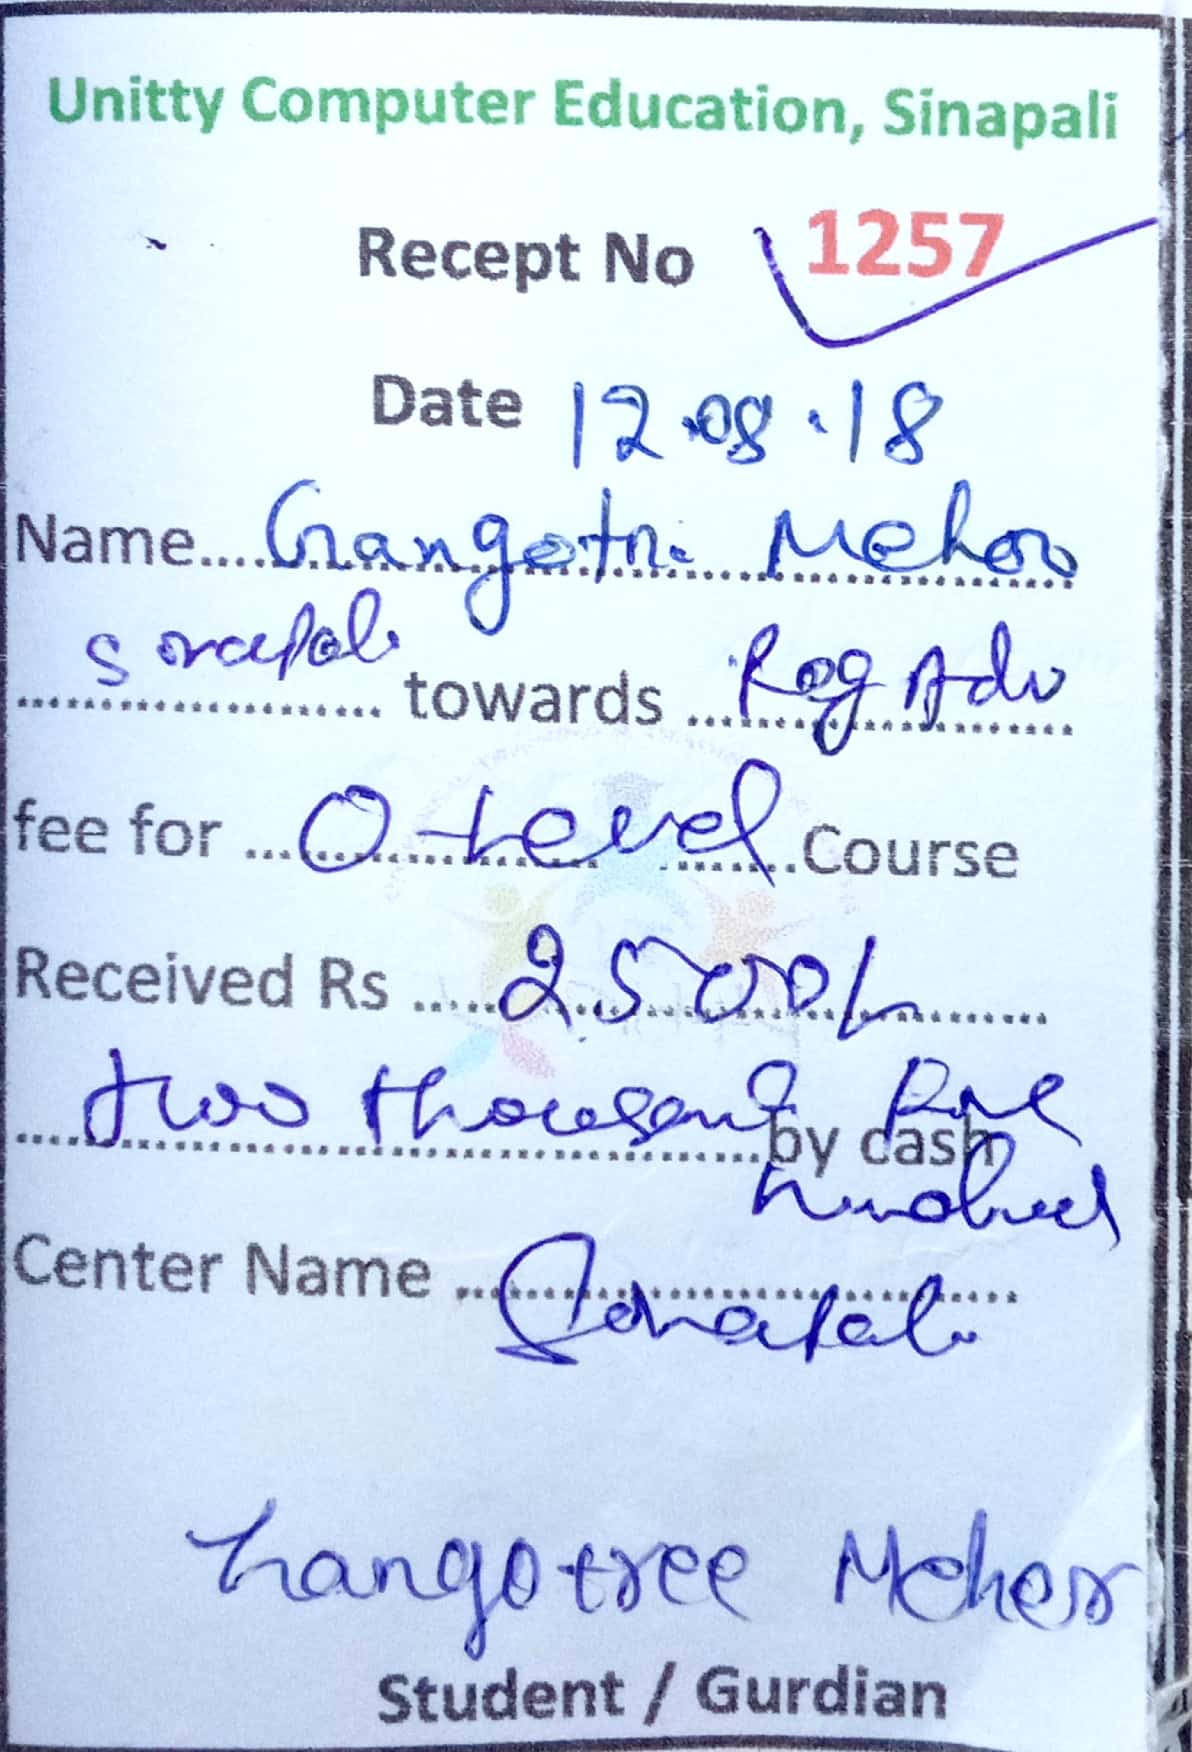 Unitty Computer Education, Sinapali
Recept No 1257
Date 12.08.18
Name....Gangotri Meher
Sinapali towards Reg Adv
fee for ...O-Level...Course
Received Rs ....2500/-
two thousand five by cash
hundred
Center Name ... Sinapali
Gangotree Meher
Student / Gurdian